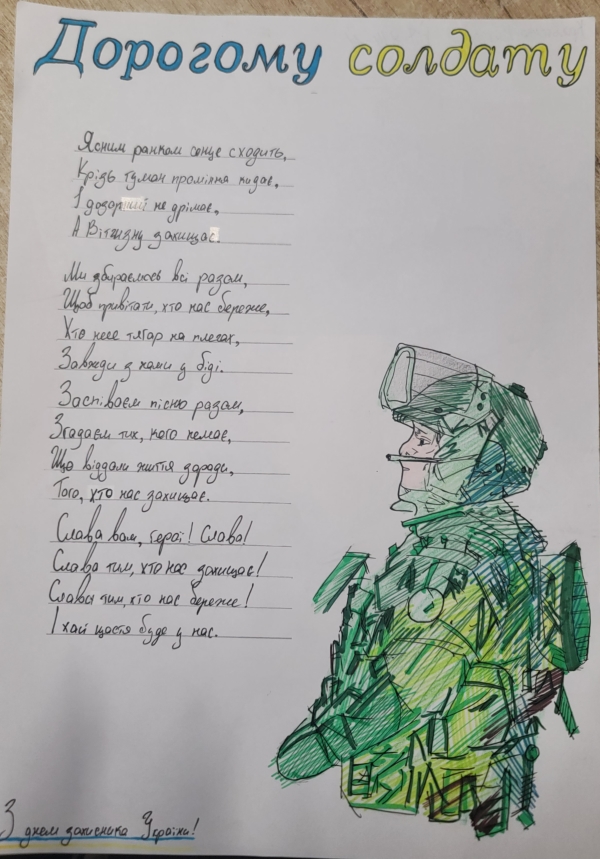 Дорогому солдату
Ясним ранком сонце сходить,
Крізь туман проміння кидає,
І дозорний не дрімає,
А Вітчизну захищає.
Ми збираємось всі разом,
Щоб привітати, хто нас береже,
Хто несе тягар на плечах,
Завжди з нами у біді.
Заспіваєм пісню разом,
Згадаєм тих, кого немає,
Що віддали життя заради,
Того, хто нас захищає.
Слава вам, герої! Слава!
Слава тим, хто нас захищає!
Слава тим, хто нас береже!
І хай щастя буде у нас.
З днем захисника України!